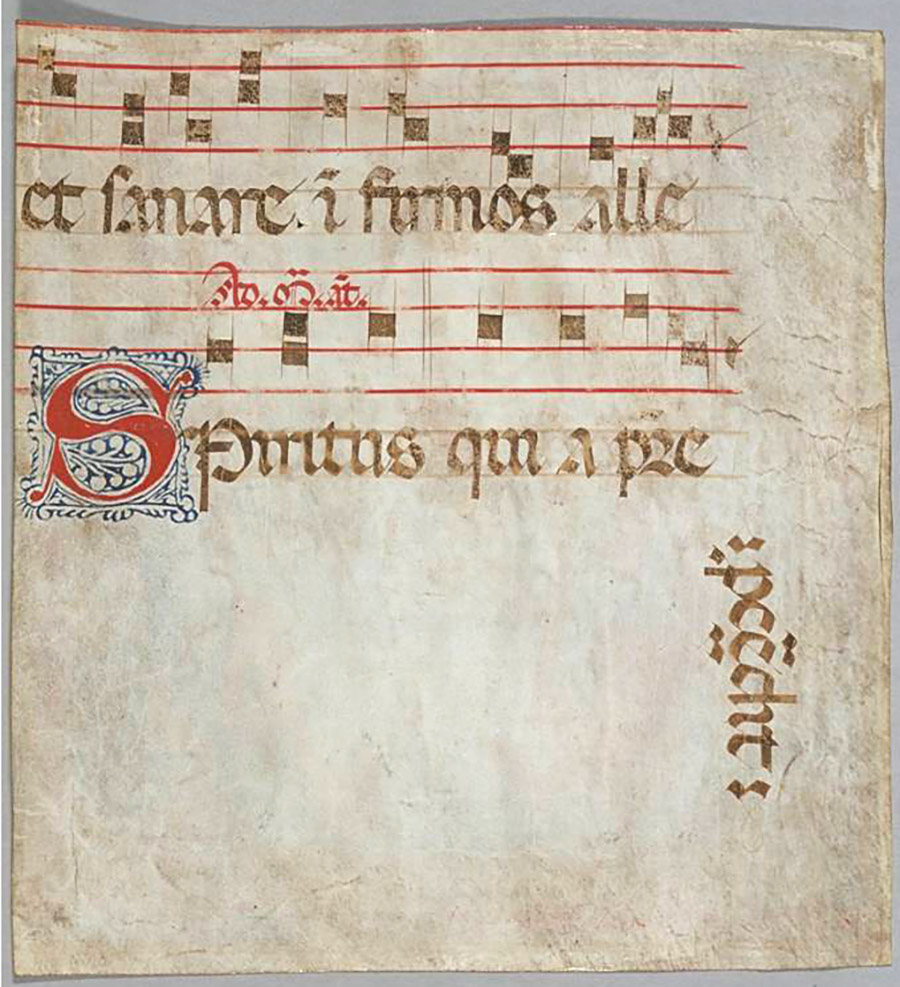 et sanare. ĩ firmos alle
Ad. M̃. añt.
Spiritus qui a pr̃e
:pcedit: